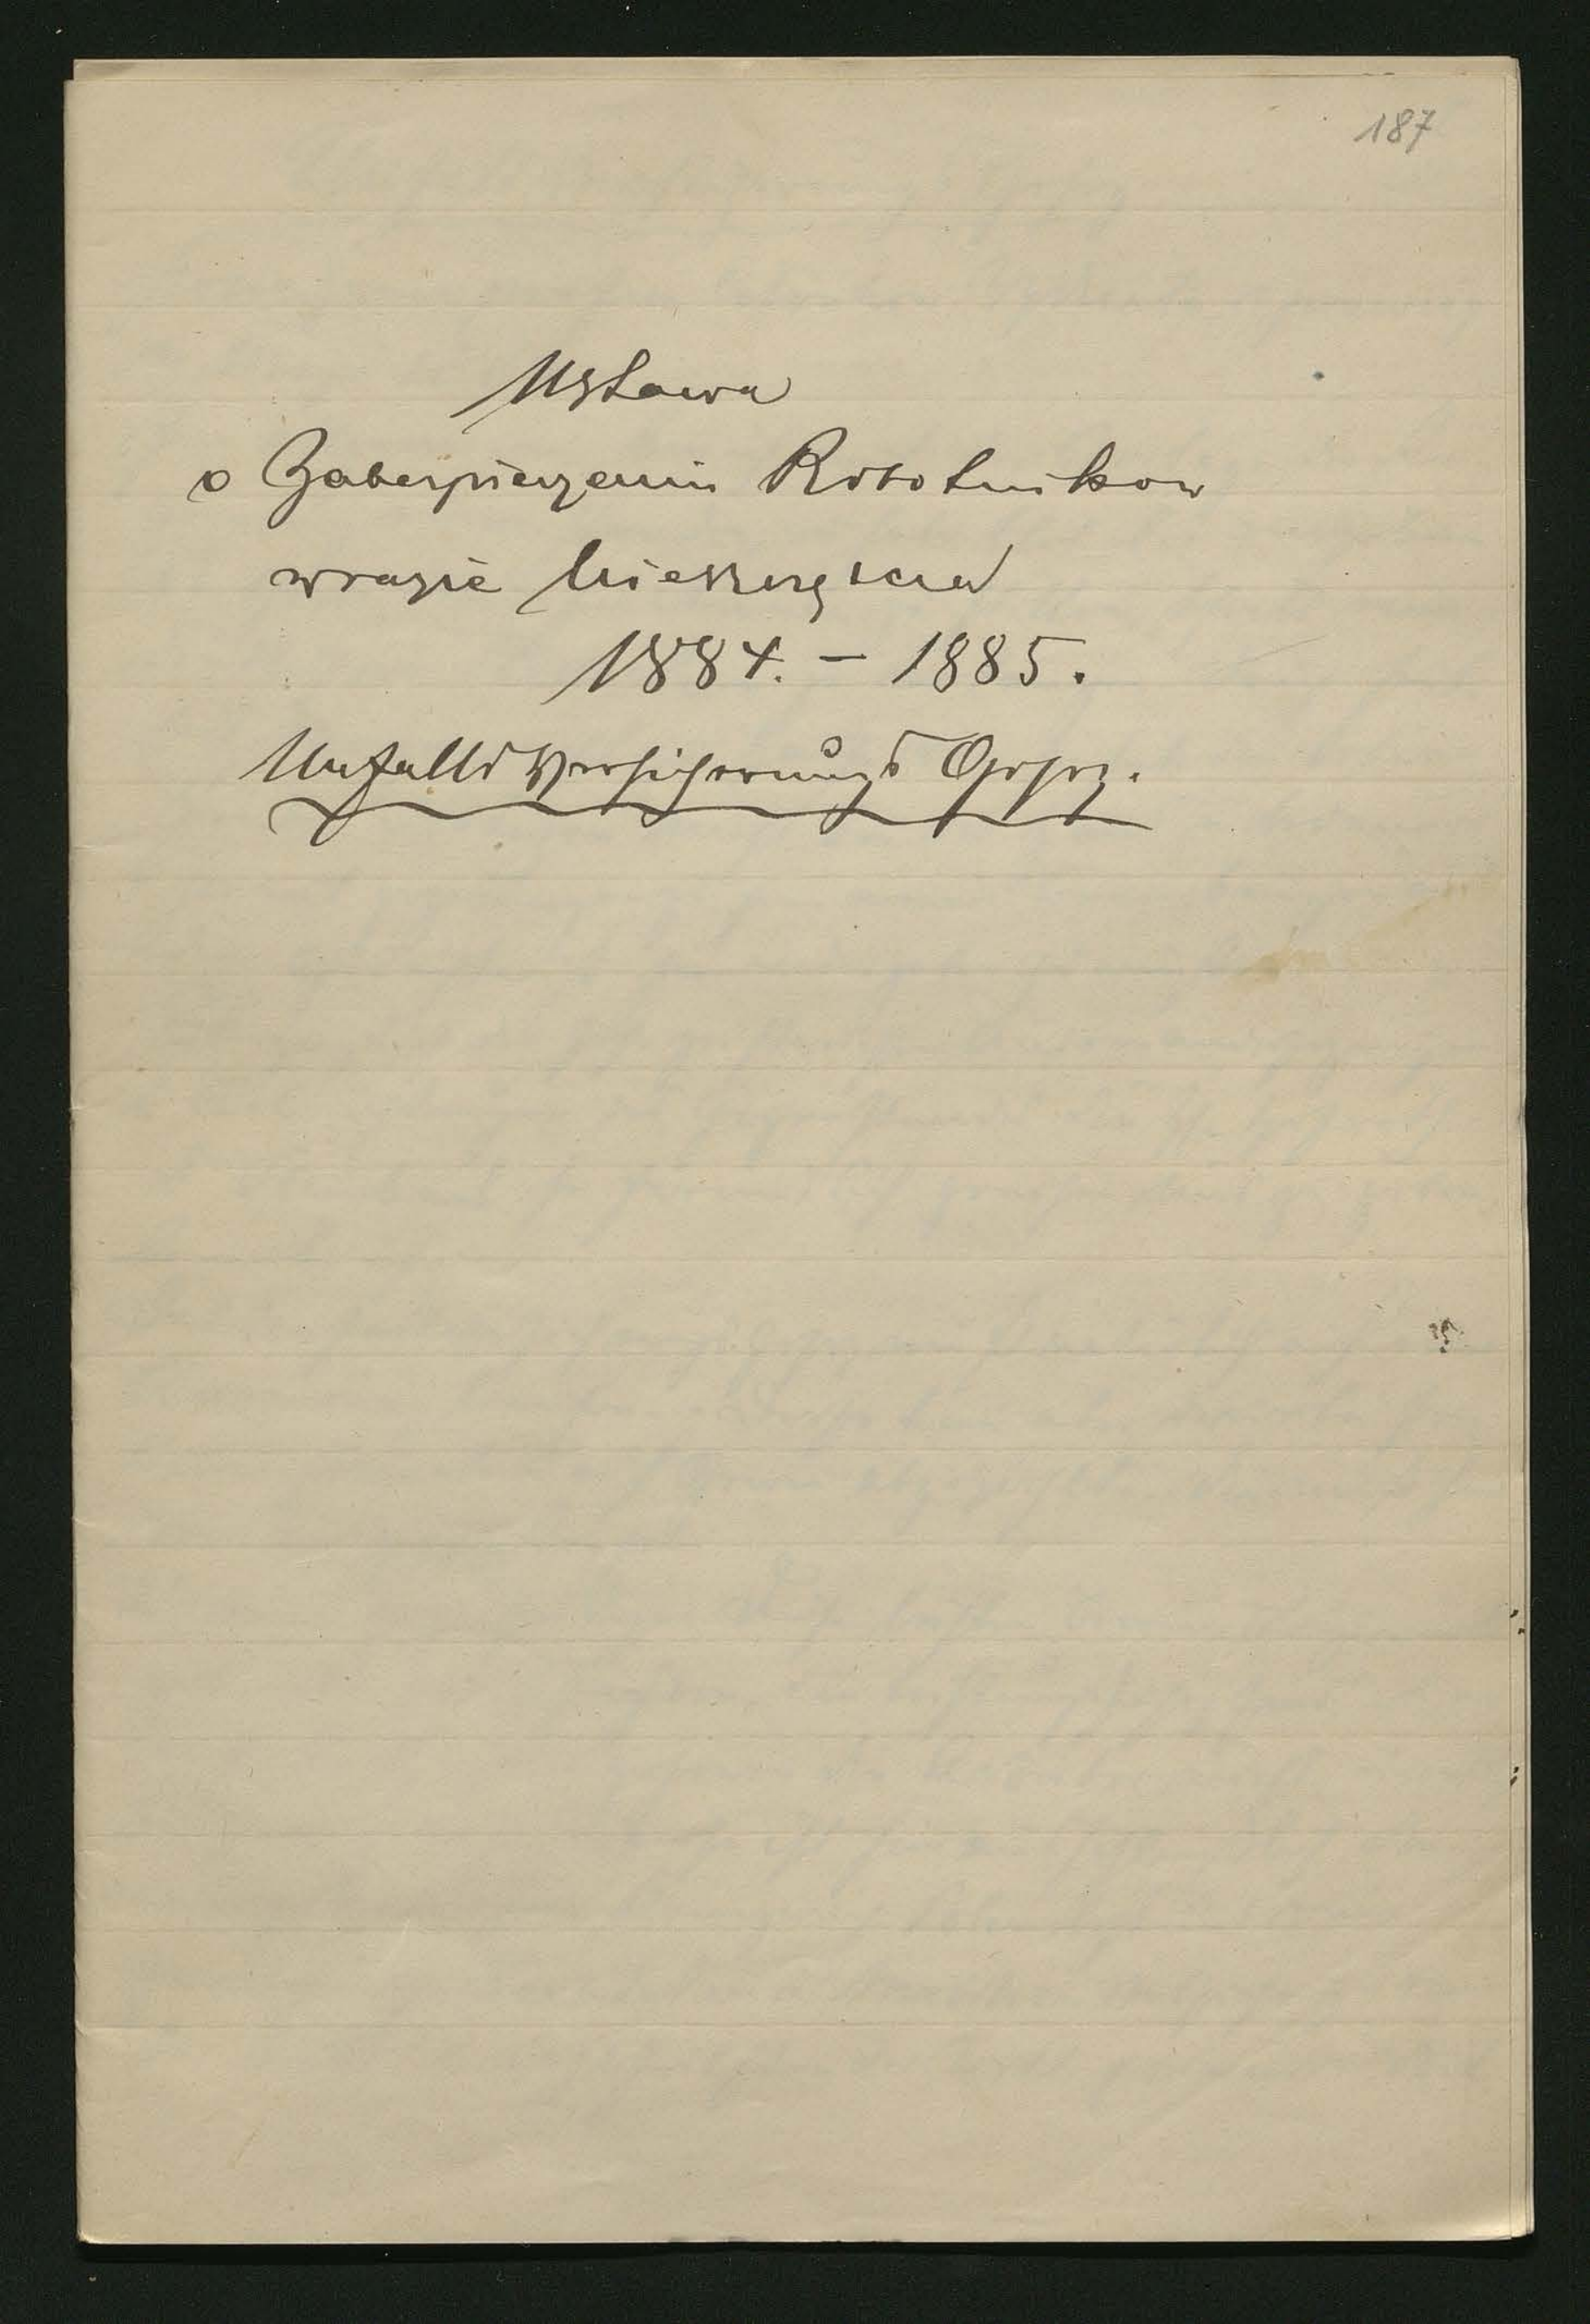 187
Ustawa
o Zabezpieczeniu Robotnikow
wrazie Nieszczęscia
1884. – 1885.
Unfalls Versicherungs Gesez.